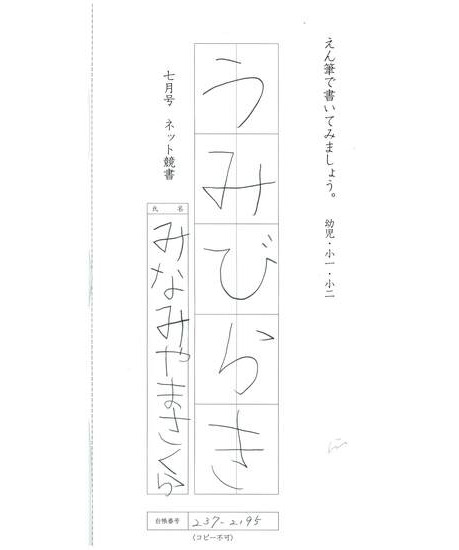 えん筆で書いてみましょう。 幼児・小一・小二
うみびらき
七月号 ネット競書
氏 名
みなみやまさくら
台帳番号 237-2195
(コピー不可)